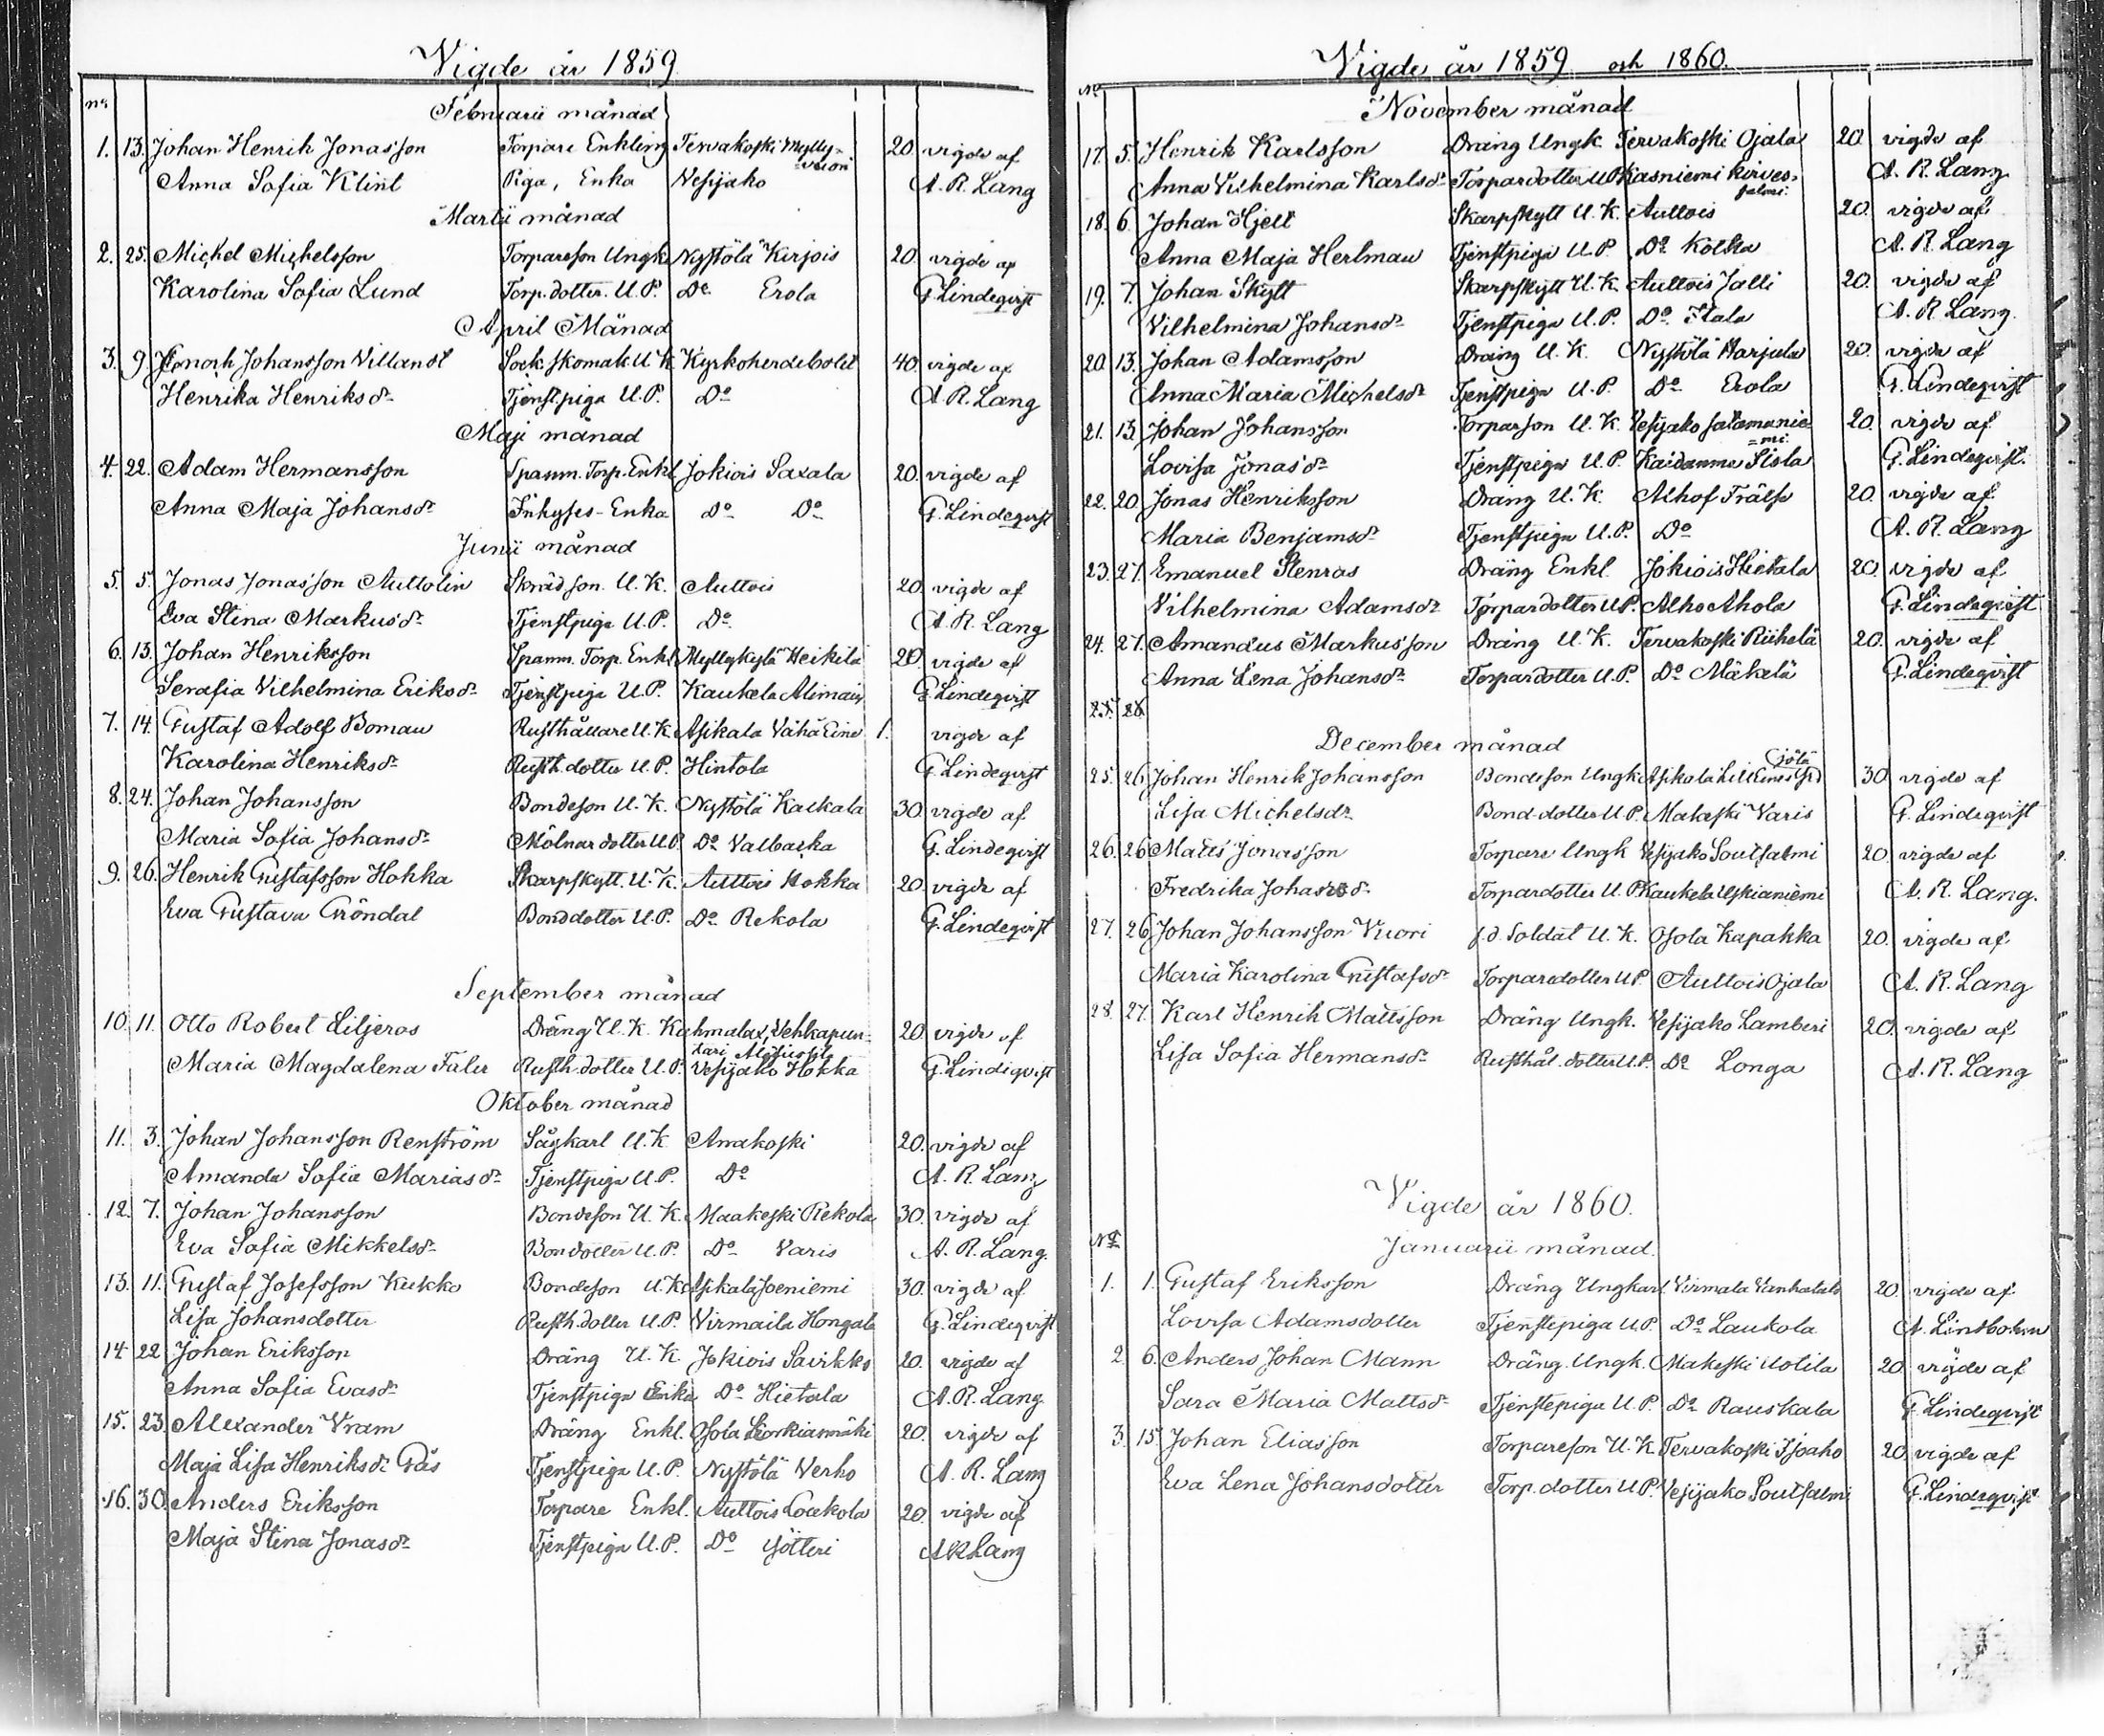 Vigde år 1859.
nr.
Februarii månad
1. 13. Johan Henrik Jonasson Torpare Enkling Tervakoski Mylly= 20. vigde af
vuori
Anna Sofia Klint Piga, Enka Vesijako A. R. Lang
Martii månad
2. 25. Michel Michelsson Torpareson Ungk. Nystölä Kirjois 20. vigde af
Karolina Sofia Lund Torp. dotter. U. P. Do Erola G. Lindeqvist
April Månad
3. 9. Enoch Johansson Villandt Sock. skomak. U. K. Kyrkoherdebolet 40. vigde af
Henrika Henriksdr Tjenst.piga U. P. Do A. R. Lang
Maji månad
4. 22. Adam Hermansson Spanm. Torp. Enkl. Jokiois Saxala 20. vigde af
Anna Maja Johansdr Inhyses-Enka Do Do G. Lindeqvist
Junii månad
5. 5. Jonas Jonasson Auttolin Skrädson. U. K. Auttois 20. vigde af
Eva Stina Markusdr Tjenstpiga U. P. Do A. R. Lang
6. 13. Johan Henriksson Spanm. Torp. Enkl. Myllykylä Heikilä 20. vigde af
Serafia Vilhelmina Eriksdr Tjenstpiga U. P. Kaukela G. Lindeqvist
7. 14. Gustaf Adolf Boman Rusthållare U. K. Asikala Vähä Eine 1. vigde af
Karolina Henriksdr Rusth. dotter U. P. Hintola G. Lindeqvist
8. 24. Johan Johansson Bondeson U. K. Nystölä Kaikala 30. vigde af
Maria Sofia Johansdr Mölnardotter U. P. Do Valbacka G. Lindeqvist
9. 26. Henrik Gustafsson Hokka Skarpskytt. U. K. Auttois Hokka 20. vigde af
Eva Gustava Gröndal Bonddotter U. P. Do Rekola G. Lindeqvist
September månad
10. 11. Otto Robert Liljeros Dräng U. K. Kuhmalax, Vehkapun= 20. vigde af
tari
Maria Magdalena Faler Rusth. dotter U. P. Vesijako Hokka G. Lindeqvist
Oktober månad
11. 3. Johan Johansson Renström Sågkarl U. K. Arrakoski 20. vigde af
Amanda Sofia Mariasdr Tjenstpiga U. P. Do A. R. Lang
12. 7. Johan Johansson Bondeson U. K. Maakeski Rekola 30. vigde af
Eva Sofia Mikkelsdr Bondotter U. P. Do Varis A. R. Lang.
13. 11. Gustaf Josefsson Kukko Bondeson U. K. Asikala Joeniemi 30. vigde af
Lisa Johansdotter Rusth. dotter U. P. Virmaila Hongala G. Lindeqvist
14 22 Johan Eriksson Dräng U. K. Jokiois Savikko 20. vigde af
Anna Sofia Evasdr Tjenstpiga Enka Do Hietala A. R. Lang.
15. 23. Alexander Vram Dräng Enkl. Osola 20. vigde af
Maja Lisa Henriksdr Gås Tjenstpiga U. P. Nystölä Verho A. R. Lang
16. 30. Anders Eriksson Torpare Enkl. Auttois Laakola 20. vigde af
Maja Stina Jonasdr Tjenstpiga U. P. Do Yötteri A R Lang
Vigde år 1859 och 1860.
No
November månad
17. 5. Henrik Karlsson Dräng Ungk. Tervakoski Ojala 20. vigde af
Anna Vilhelmina Karlsdr Torpardotter U. P. Kasniemi Kirves= A. R. Lang
salmi.
18. 6. Johan Hjelt Skarpskytt U. K. Auttois 20. vigde af
Anna Maja Herlman Tjenstpiga U. P. Do Kolha A. R. Lang
19. 7. Johan Skytt Skarpskytt U. K. Auttois Jalli 20. vigde af
Vilhelmina Johansdr Tjenstpiga U. P. Do Itala A. R. Lang.
20. 13. Johan Adamsson Dräng U. K. Nystölä Harjula 20. vigde af
Anna Maria Michelsdr Tjenstpiga U. P. Do Erola G. Lindeqvist
21. 13. Johan Johansson Torparson U. K. Vesijako Salamanie 20. vigde af
=mi.
Lovisa Jonasdr Tjenstpiga U. P. Kaidanma Sisla G. Lindeqvist.
22. 20. Jonas Henriksson Dräng U. K. Alhof Frälse 20. vigde af
Maria Benjamsdr Tjenstpiga U. P. Do A. R. Lang
23. 27. Emanuel Stenros Dräng Enkl. Jokiois Hietala 20. vigde af
Vilhelmina Adamsdr Torpardotter U. P. Alho Ahola G. Lindeqvist
24. 27. Amandus Markusson Dräng U. K. Tervakoski Riihelä 20. vigde af
Anna Lena Johansdr Torpardotter U. P. Do Mäkelä G. Lindeqvist
25. 26
December månad
25. 26 Johan Henrik Johansson Bondeson Ungk. Asikala 30 vigde af
Lisa Michelsdr. Bond-dotter U. P. Makeski Varis G. Lindeqvist
26. 26 Matts Jonasson Torpare Ungk Vesijako Soutsalmi 20. vigde af
Fredrika Johansdr. Torpardotter U. P. Kaukela Uskianiemi A. R. Lang.
27. 26 Johan Johansson Vuori f. d. Soldat U. K. Osola Kapakka 20. vigde af
Maria Karolina Gustafsdr Torparedotter U. P. Auttois Ojala A. R. Lang
28. 27. Karl Henrik Mattsson Dräng Ungk. Vesijako Lamberi 20. vigde af
Lisa Sofia Hermansdr Rusthål. dotter U. P. Do Longa A. R. Lang
Vigde år 1860.
No
Januarii månad.
1. 1. Gustaf Eriksson Dräng Ungkarl Virmala Vanhatalo 20. vigde af
Lovisa Adamsdotter Tjenstepiga U. P. Do Laukola A. Lindbohm
2. 6. Anders Johan Mann Dräng. Ungk. Makeski Uotila 20. vigde af
Sara Maria Mattsdr Tjenstepiga U. P. Do Rauskala G. Lindeqvist
3. 15. Johan Eliasson Torpareson U. K. Tervakoski Isoaho 20. vigde af
Eva Lena Johansdotter Torp. dotter U. P. Vesijako Soutsalmi G. Lindeqvist